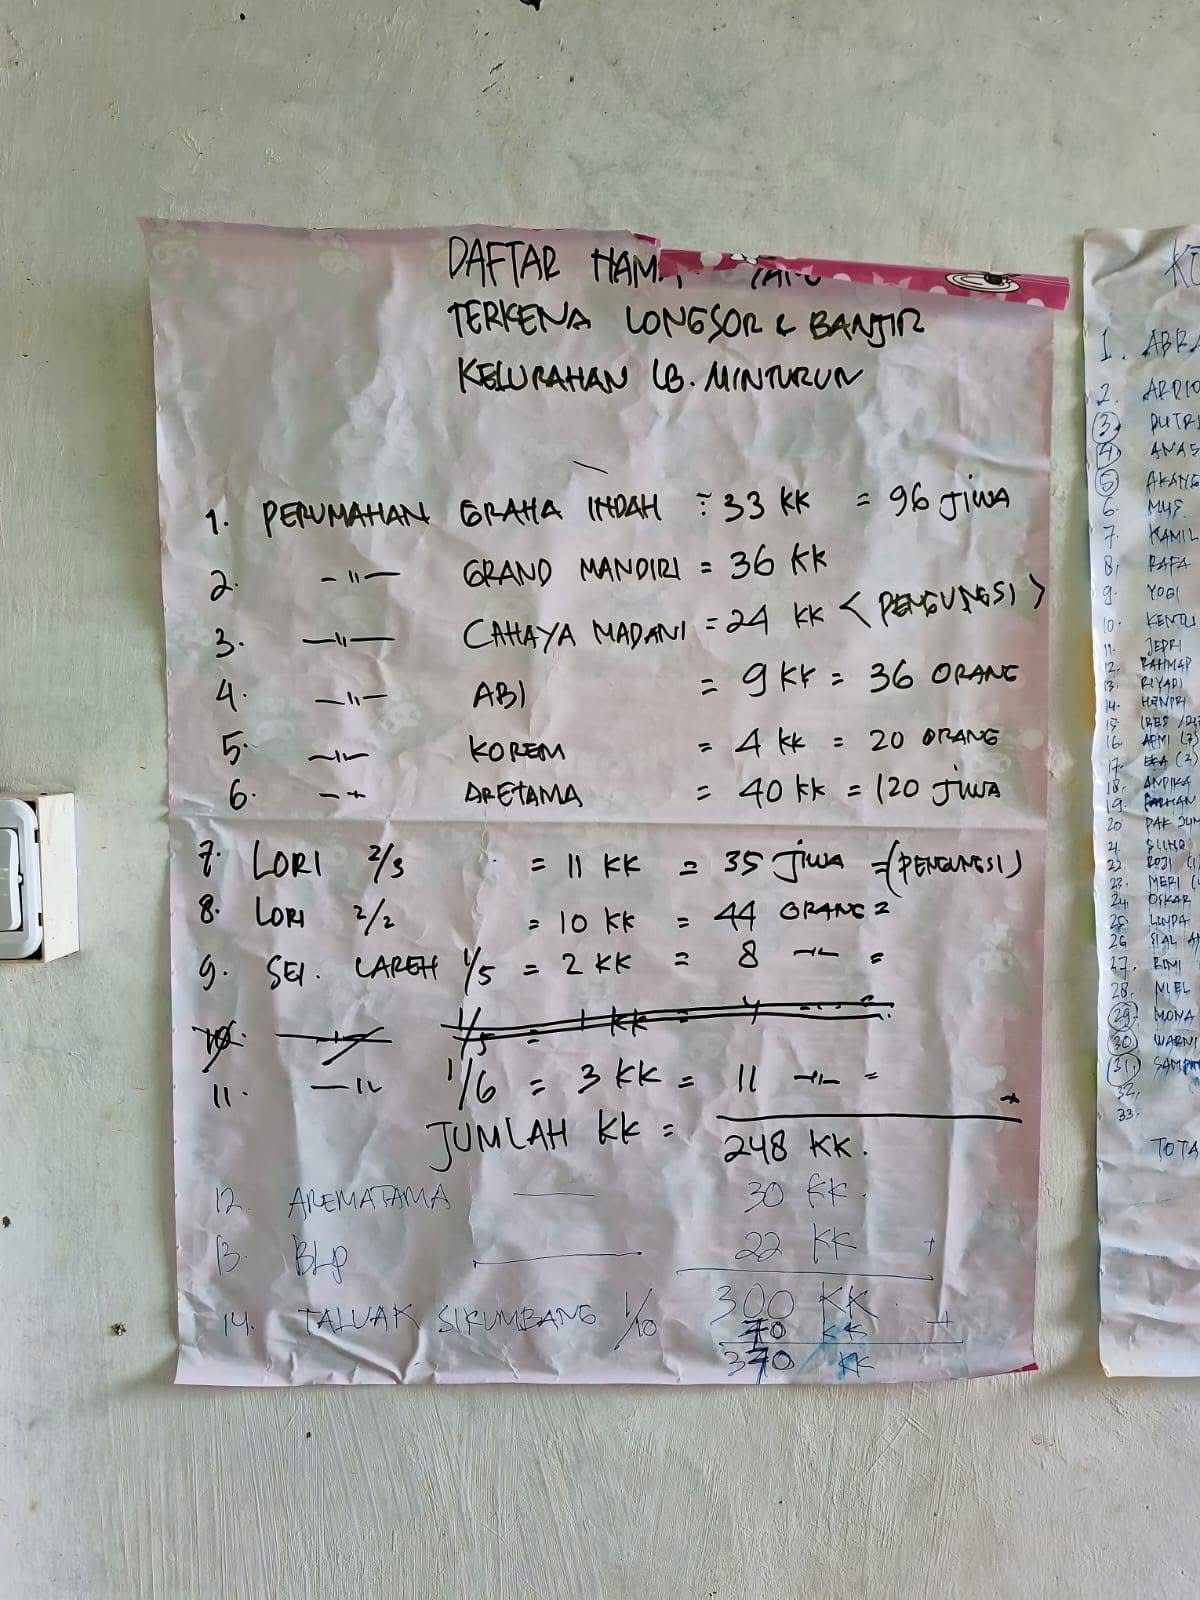 DAFTAR
TERKENA LONGSOR & BANJIR
KELURAHAN LB. MINTURUN
1. PERUMAHAN GRAHA INDAH = 33 KK = 96 JIWA
2. -"- GRAND MANDIRI = 36 KK
3. -"- CAHAYA MADANI = 24 KK < PENGUNGSI >
4. -"- ABI = 9 KK = 36 ORANG
5. -"- KOREM = 4 KK = 20 ORANG
6. -"- ARETAMA = 40 KK = 120 JIWA
7. LORI 2/3 = 11 KK = 35 JIWA = (PENGUNGSI)
8. LORI 2/2 = 10 KK = 44 ORANG =
9. SEI. LAREH 1/5 = 2 KK = 8 -"- =
10. -"- 1/5 = 1 KK = 4
11. -"- 1/6 = 3 KK = 11 -"- =
+
JUMLAH KK = 248 KK.
12. AREMATAMA — 30 KK.
13. BLP — 22 KK +
300 KK
14. TALUAK SIKUMBANG 1/10 70 KK +
370 KK
1. ABRA
2. ARDIO
3. PUTRI
4. AMAS
5. AKANG
6.
7. KAMIL
8. RAFA
9. YOGI
10.
11. JEPRI
12. RAHMAD
13. RIYADI
14. HENDRI
15.
16. ARMI (7)
17. EKA (3)
18. ANDIKA
19. FARHAN
20 PAK JUM
21.
22. ROJI
23. MERI
24. OSKAR
25.
26
27. RIMI
28. MIEL
29. MONA
30. WARNI
31.
32.
33.
TOTA